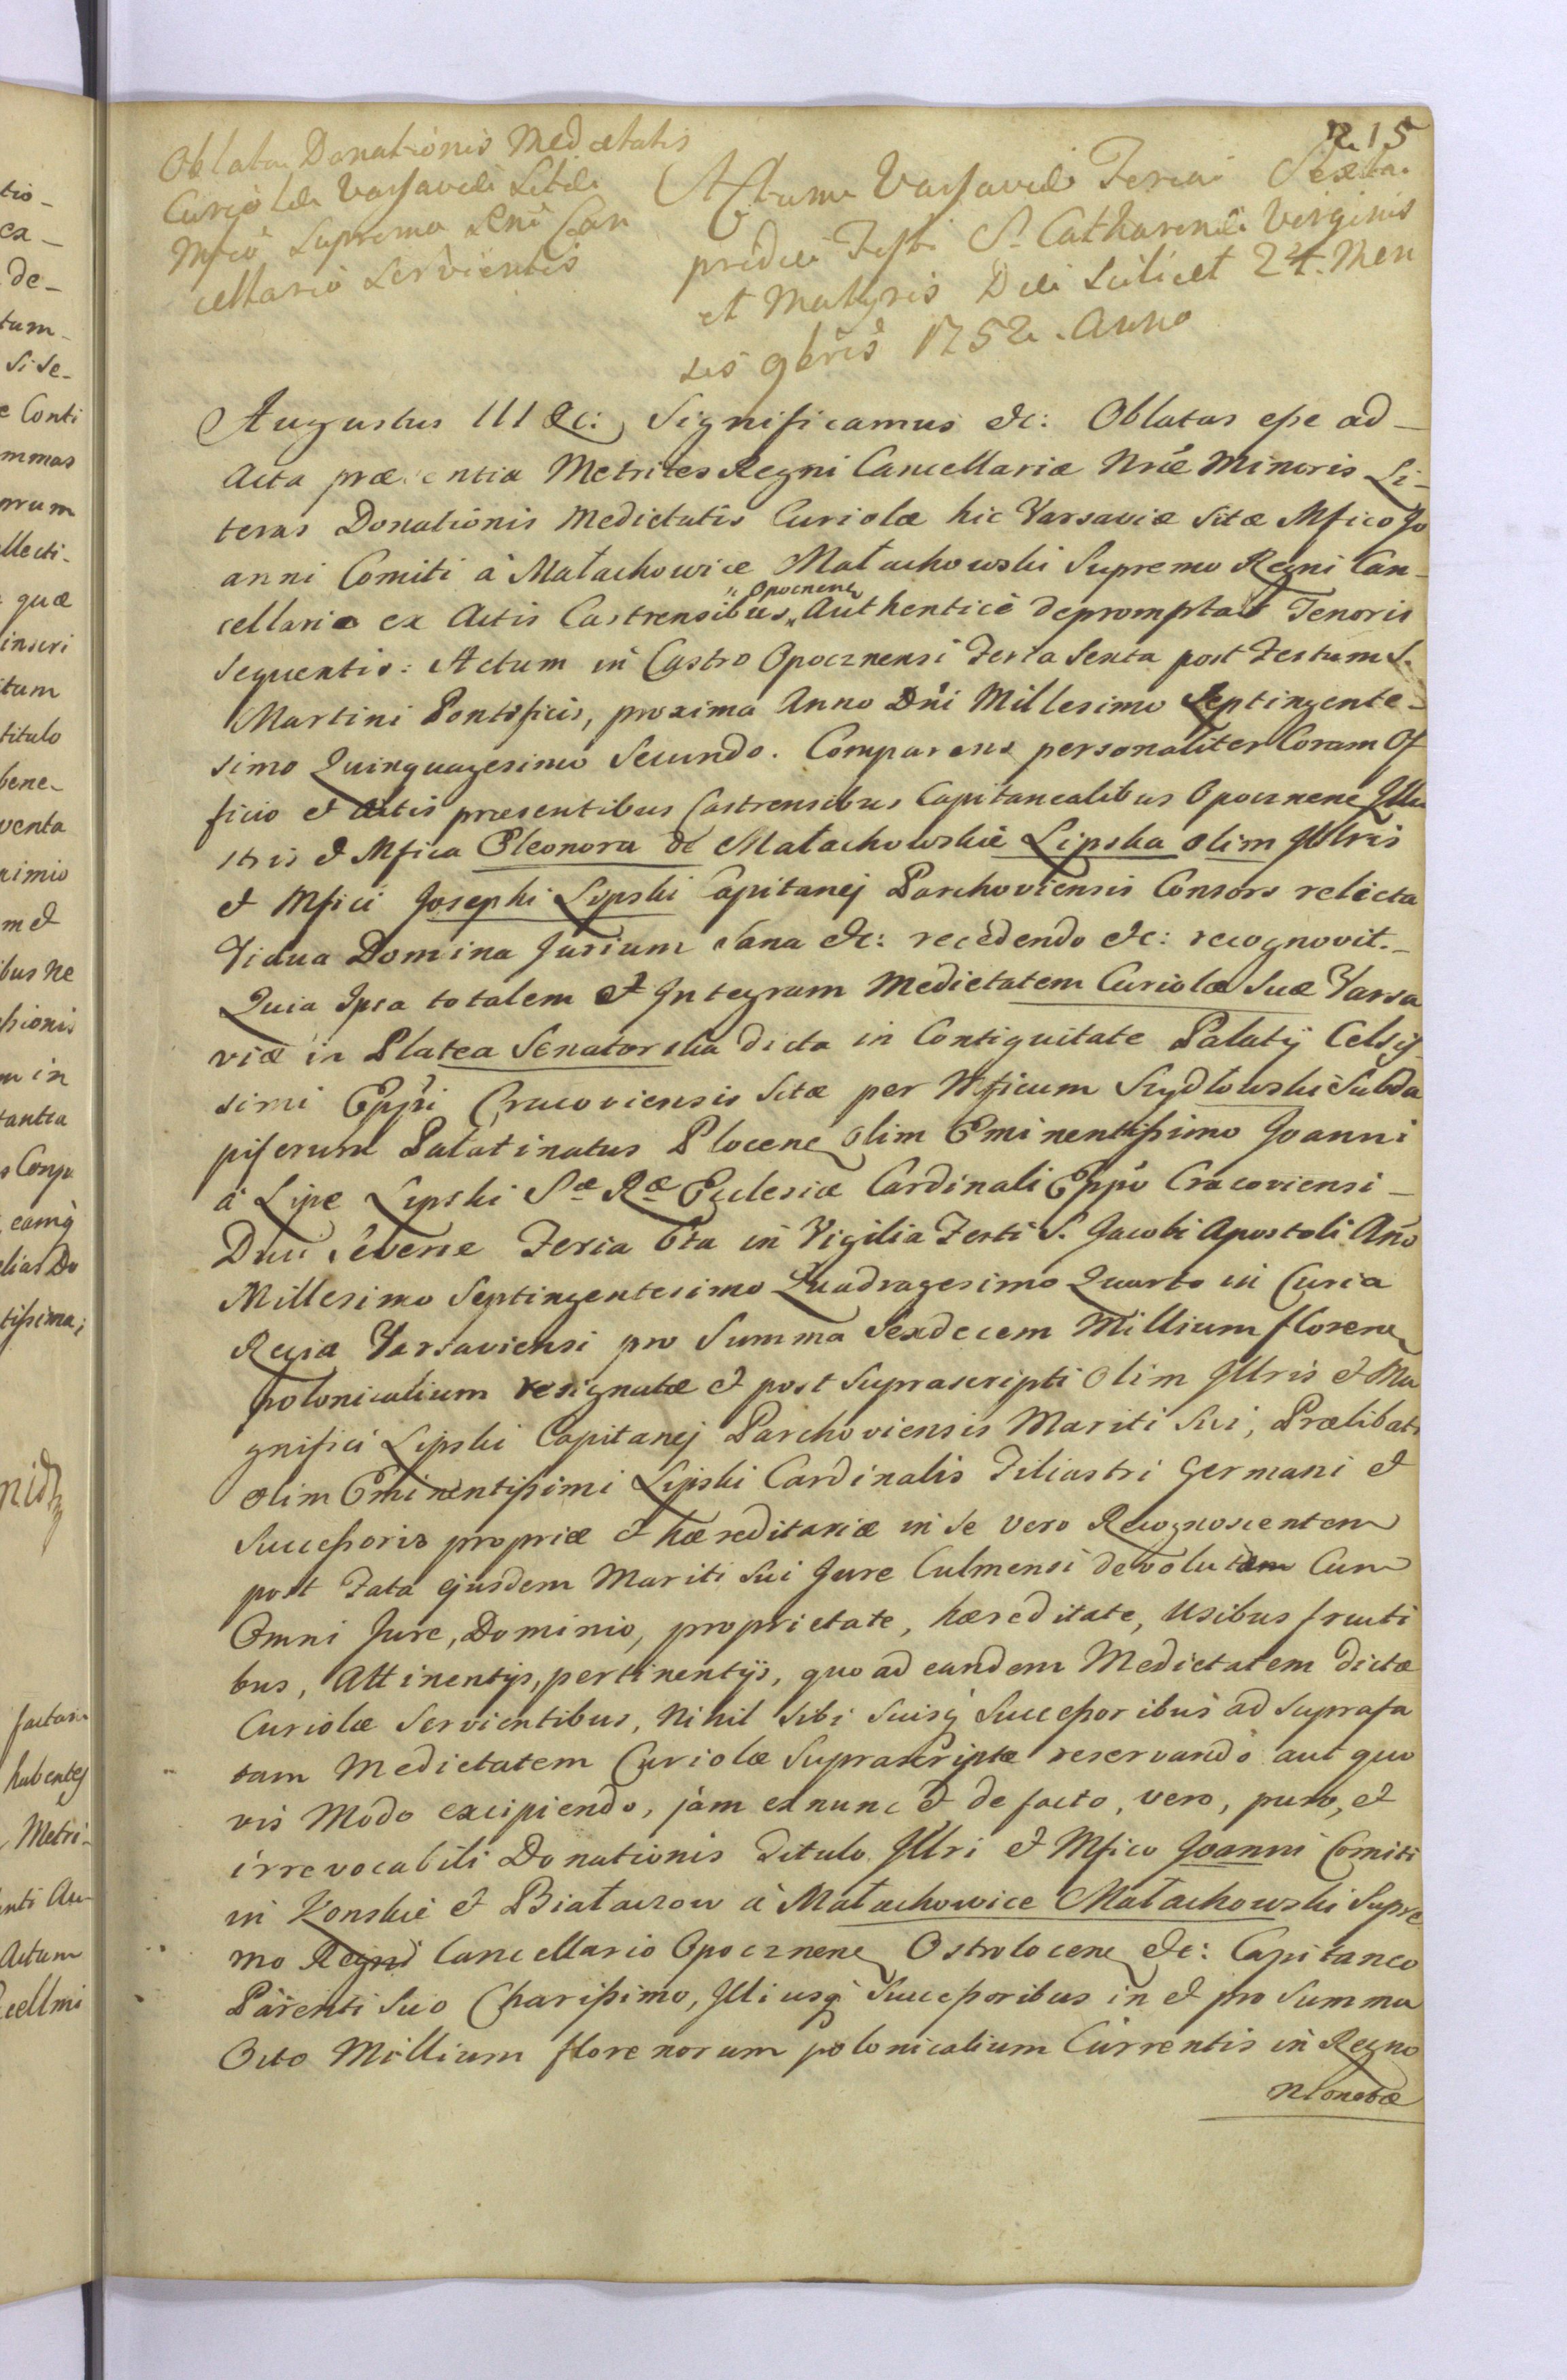 215
Oblata Donationis Medietatis
Curiolæ Varsaviæ Sitæ
Mfico Supremo Regni Can
cellario Servientis
Actum Varsaviæ Feria Sexta
pridie Festi S. Catharinæ Virginis
et Martyris Die Scilicet 24. Men
sis 9bris 1752. Anno
Augustus III &c: Significamus &c: Oblatas esse ad
Acta præsentia Metrices Regni Cancellariæ Nræ Minoris Li-
teras Donationis Medietatis Curiolæ hic Varsaviæ Sitæ Mfico Jo
anni Comiti à Małachowice Małachowski Supremo Regni Can-
cellario ex Actis Castrensibus "Opocznen" Authenticè depromptas Tenoris
Sequentis: Actum in Castro Opocznensi Feria Sexta post Festum S.
Martini Pontificis, proxima Anno Dni Millesimo Septingente-
simo Quinquagesimo Secundo. Comparens personaliter Coram Of
ficio et Actis præsentibus Castrensibus Capitanealibus Opocznen Illu
stris et Mfica Eleonora de Małachowskie Lipska olim Illris
et Mfici Josephi Lipski Capitanej Parchoviensis Consors relicta
Vidua Domina Jurium Sana &c: recedendo &c: recognovit.-
Quia Ipsa totalem et Integram Medietatem Curiolæ Suæ Varsa
viæ in Platea Senatorska dicta in Contiguitate Palatij Celsis-
simi Eppi Cracoviensis Sitæ per Mficum Szydłowski Subda
piferum Palatinatus Plocen olim Eminentissimo Joanni
à Lipe Lipski Sæ Ræ Ecclesiæ Cardinali Eppo Cracoviensi -
Duci Severie Feria 6ta in Vigilia Festi S. Jacobi Apostoli Ano
Millesimo Septingentesimo Quadragesimo Quarto in Curia
Regia Varsaviensi pro Summa Sexdecem Millium floren
polonicalium resignatæ et post Suprascripti olim Illris et Ma
gnifici Lipski Capitanej Parchoviensis Mariti Sui, Prælibati
olim Eminentissimi Lipski Cardinalis Filiastri Germani et
Successoris propriæ et hæreditariæ in Se vero Recognoscentem
post Fata ejusdem Mariti Sui Jure Culmensi devolutam Cum
Omni Jure, Dominio, proprietate, hæreditate, Usibus fructi
bus, Attinentijs, pertinentijs, quo ad eandem Medietatem dictæ
Curiolæ Servientibus, Nihil Sibi Suisq Successoribus ad Suprafa
tam Medietatem Curiolæ Suprascriptæ reservando aut quo
vis Modo excipiendo, jam ex nunc et de facto, vero, puro, et
irrevocabili Donationis Titulo Illri et Mfico Joanni Comiti
in Konskie et Białaczow à Małachowice Małachowski Supre
mo Regni Cancellario Opocznen Ostrolocen &c: Capitaneo
Parenti Suo Charissimo, Illiusq Successoribus in et pro Summa
Octo Millium florenorum polonicalium Currentis in Regno
Monetæ